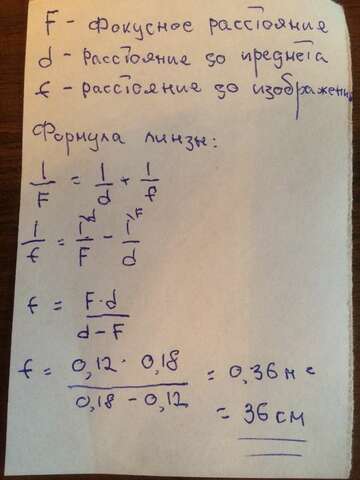 F - Фокусное расстояние
d - Расстояние до предмета
f - расстояние до изображени
Формула линзы:
1/F = 1/d + 1/f
1/f = 1/F - 1/d
f = F·d / d-F
f = 0,12 · 0,18 / 0,18 - 0,12 = 0,36м =
= 36 см